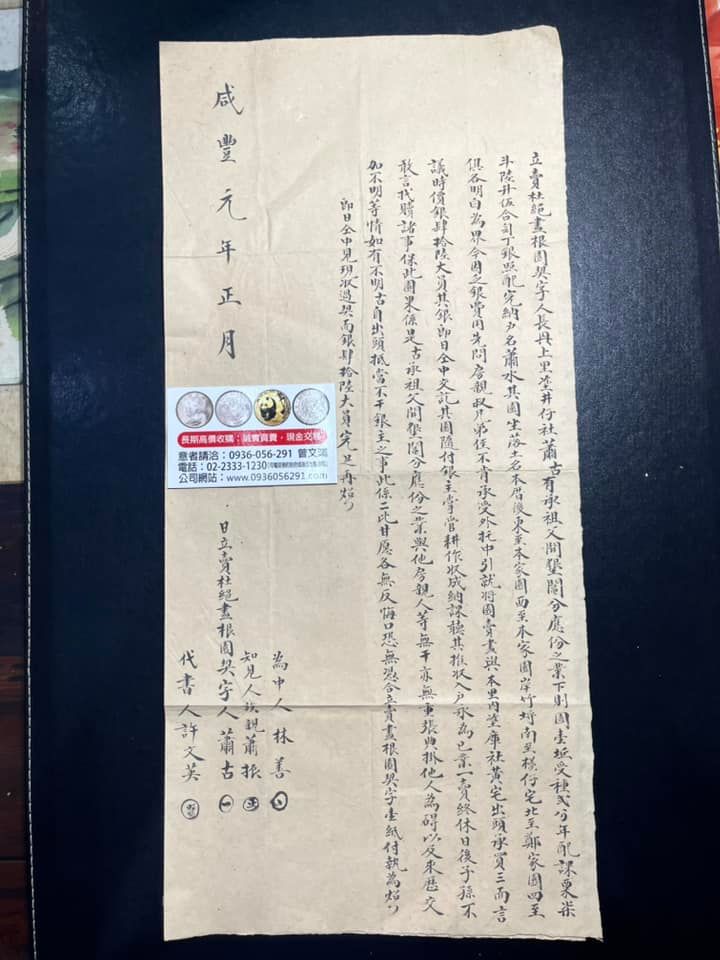 立賣杜絕盡根園契字人長興上里塗井仔社蕭古有承祖父開墾鬮分應份之業下則園壹坵受種弍分年配課粟柒
斗陸升伍合旬丁銀照配完納戶名蕭水其園坐落土名本厝後東至本家園西至本家園岸竹埒南至橫仔宅北至鄭家園四至
俱各明白為界今因乏銀費用先問房親叔兄弟侄不肯承受外托中引就將園賣盡與本里內塗庫社黃宅出頭承買三面言
議時價銀肆拾陸大員其銀即日仝中交訖其園隨付銀主掌管耕作收成納課聽其推收入戶永為己業一賣終休日後子孫不
敢言找贖諸事保此園果係是古承祖父開墾鬮分應份之業與他房親人等無干亦無重張典掛他人為碍以及來歷交
加不明等情如有不明古自出頭抵當不干銀主之事此係二比甘愿各無反悔口恐無憑合立賣盡根園契字壹紙付執為炤
即日仝中見現收過契面銀肆拾陸大員完足再炤
為中人林善
知見人族親蕭振
日立賣杜絕盡根園契字人蕭古
代書人許文英
咸豐元年正月
長期高價收購：誠實買賣，現金交易
意者請洽：0936-056-291 曾文鴻
電話：02-2333-1230
公司網站：www.0936056291.com